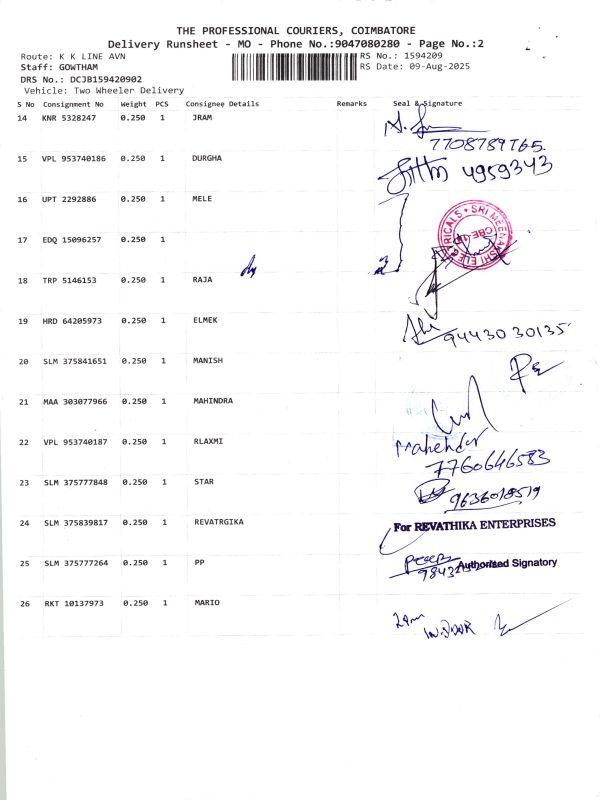 THE PROFESSIONAL COURIERS, COIMBATORE
Delivery Runsheet - MO - Phone No.:9047080280 - Page No.:2
Route: K K LINE AVN RS No.: 1594209
Staff: GOWTHAM RS Date: 09-Aug-2025
DRS No.: DCJB159420902
Vehicle: Two Wheeler Delivery
S No Consignment No Weight PCS Consignee Details Remarks Seal & Signature
14 KNR 5328247 0.250 1 JRAM
7708789765
15 VPL 953740186 0.250 1 DURGHA
4959343
16 UPT 2292886 0.250 1 MELE
SRI MEENAKSHI ELECTRICALS
17 EDQ 15096257 0.250 1
18 TRP 5146153 0.250 1 RAJA
19 HRD 64205973 0.250 1 ELMEK
9443030135
20 SLM 375841651 0.250 1 MANISH
21 MAA 303077966 0.250 1 MAHINDRA
22 VPL 953740187 0.250 1 RLAXMI
Mahendar
7760646583
23 SLM 375777848 0.250 1 STAR
9636018519
24 SLM 375839817 0.250 1 REVATRGIKA
For REVATHIKA ENTERPRISES
25 SLM 375777264 0.250 1 PP
Authorized Signatory
26 RKT 10137973 0.250 1 MARIO